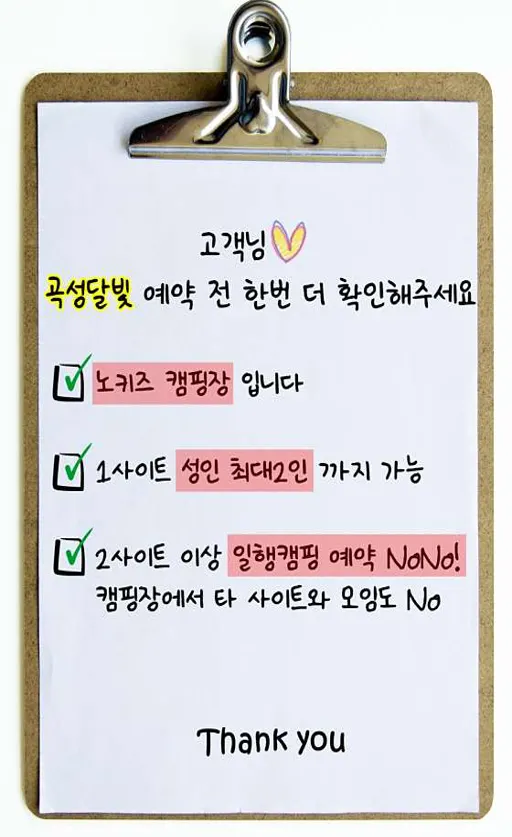 고객님
곡성달빛 예약 전 한번 더 확인해주세요
노키즈 캠핑장 입니다
1사이트 성인 최대2인 까지 가능
2사이트 이상 일행캠핑 예약 NoNo!
캠핑장에서 타 사이트와 모임도 No
Thank you